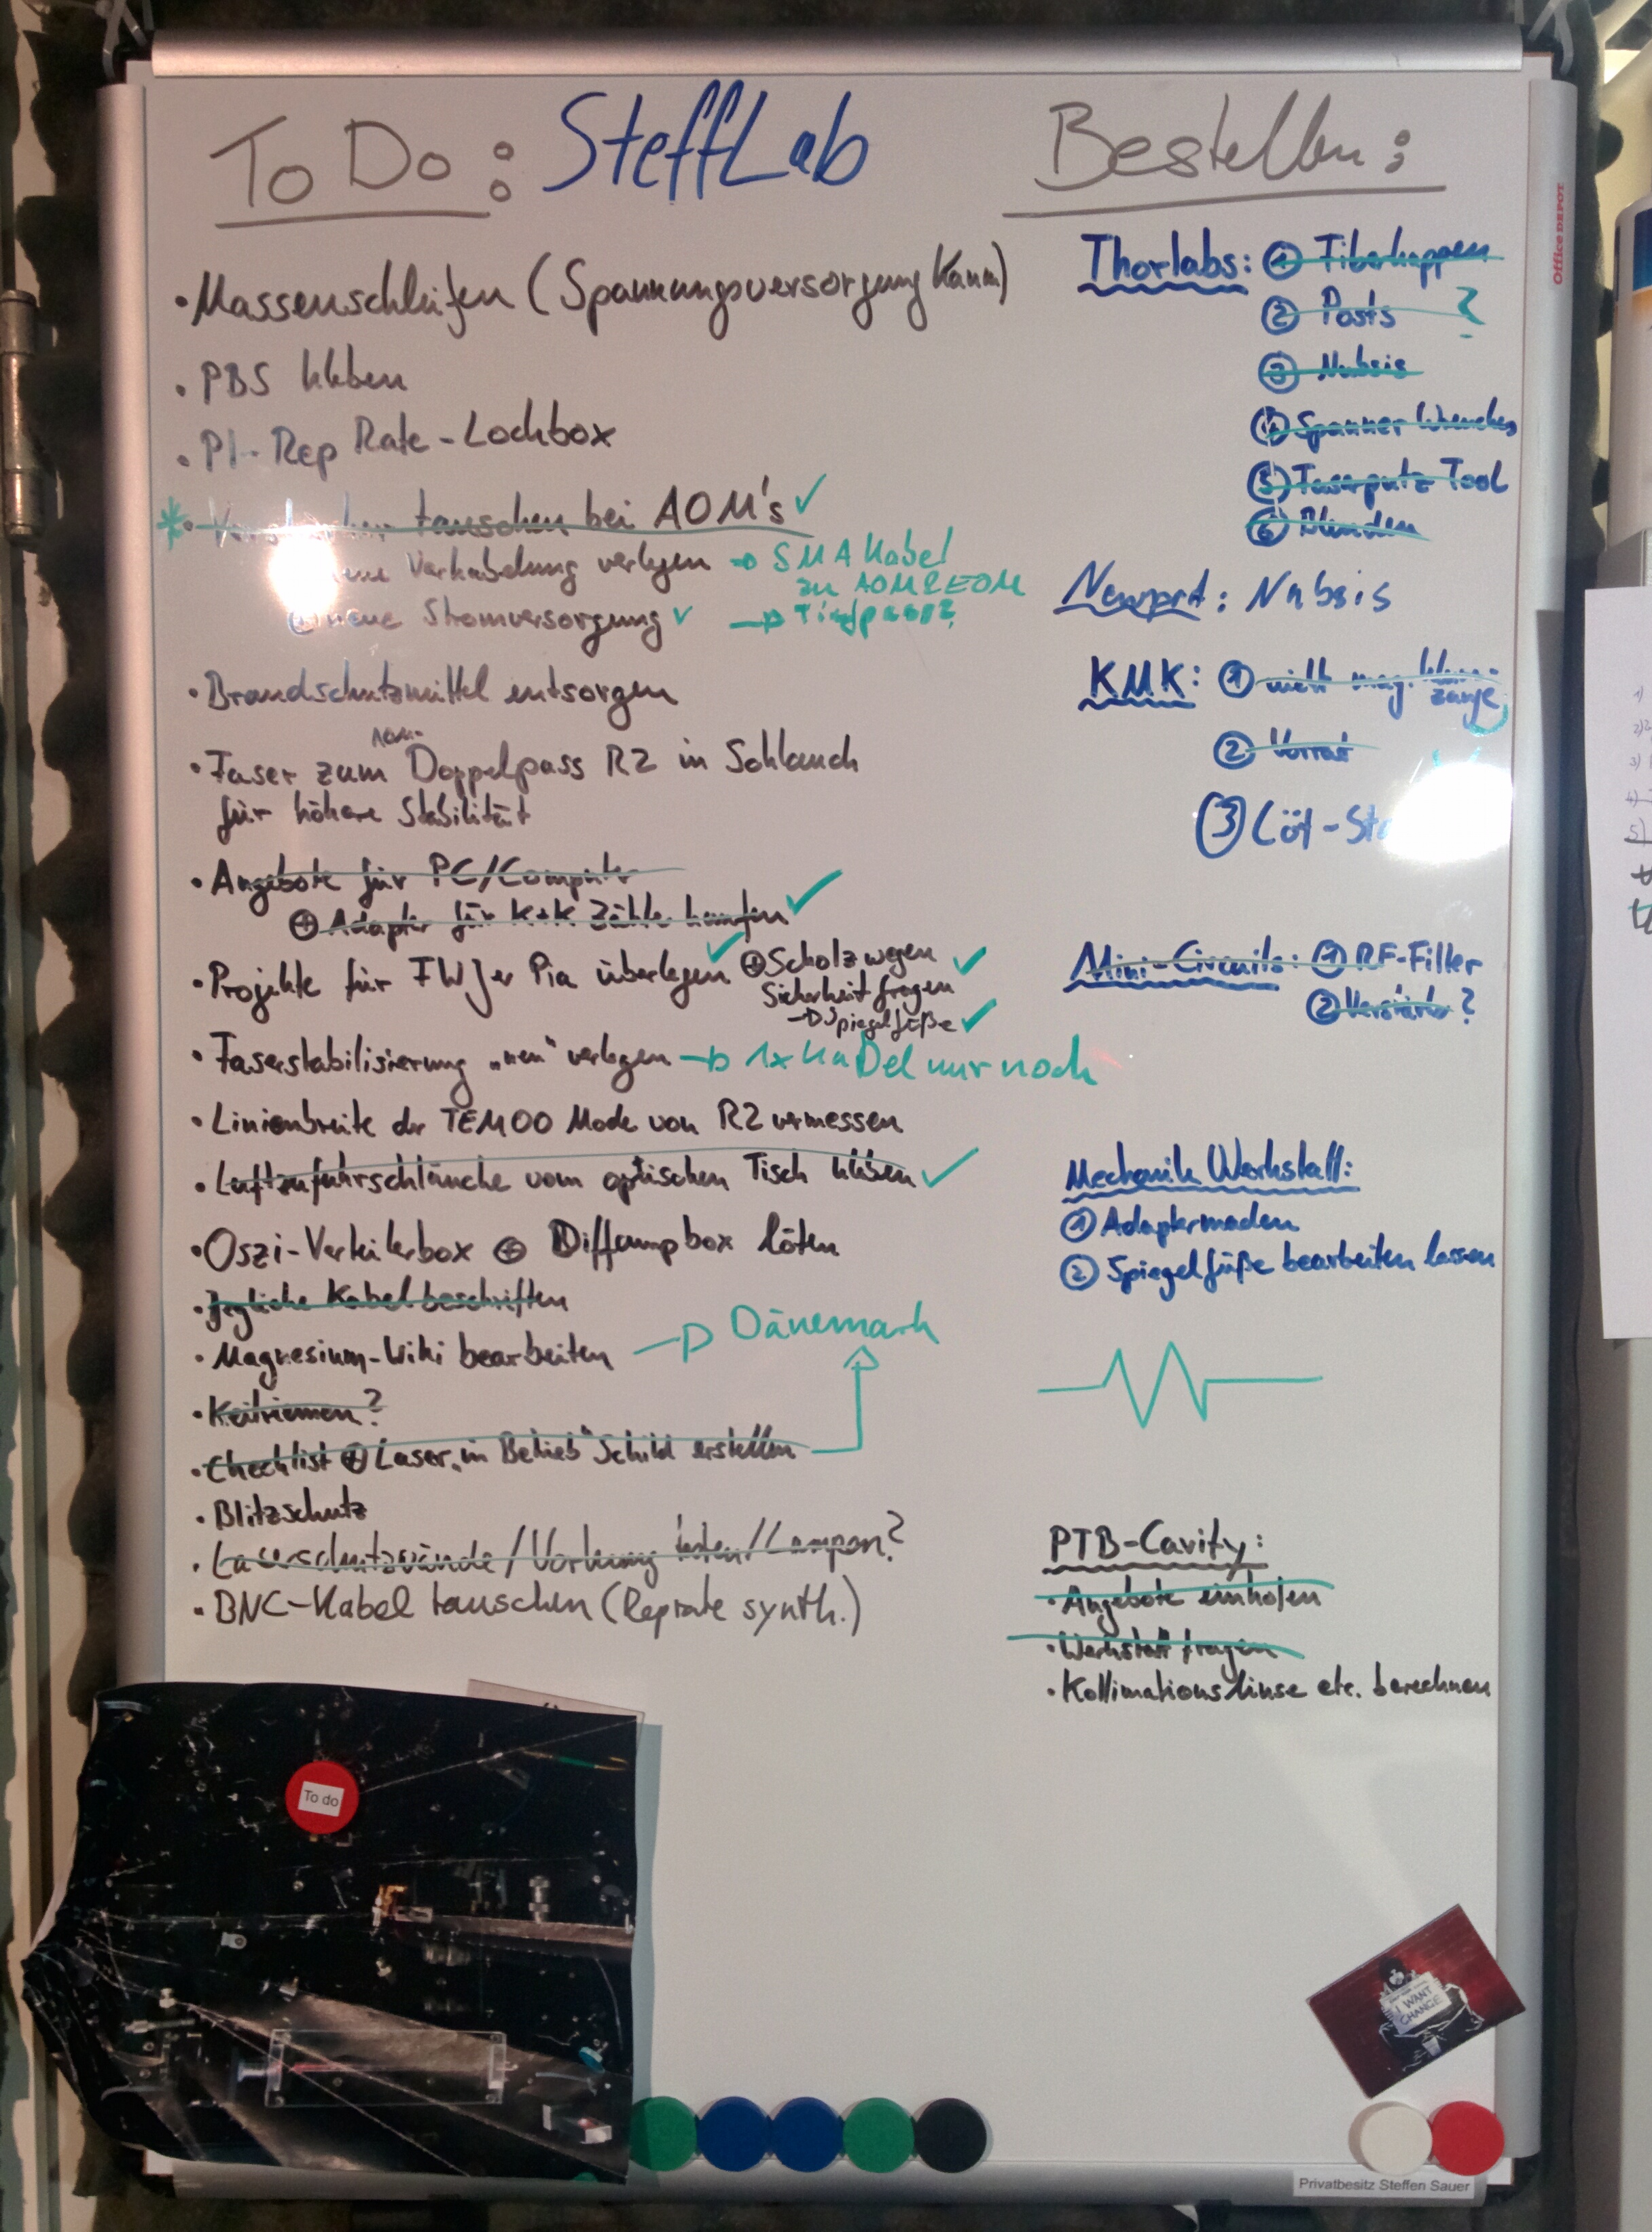 To Do: SteffLab
• Massenschleifen (Spannungsversorgung Kamm)
• PBS kleben
• PI-Rep Rate-Lockbox
tauschen bei AOM's ✓
Verkabelung verlegen → SMA Kabel
zu AOM & EOM
neue Stromversorgung ✓ → Tiefpass?
• Brandschutzmittel entsorgen
• Faser zum Doppelpass R2 in Schlauch
für höhere Stabilität
• Angebote für PC/Computer
⊕ Adapter für K+K Zähler kaufen ✓
• Projekte für FWJer Pia überlegen ✓ ⊕ Scholz wegen ✓
Sicherheit fragen
→ Spiegelfüße ✓
• Faserstabilisierung "neu" verlegen → 1x Kabel nur noch
• Linienbreite der TEM00 Mode von R2 vermessen
• Luftzufuhrschläuche vom optischen Tisch kleben ✓
• Oszi-Verteilerbox ⊕ Diffampbox löten
• Jegliche Kabel beschriften
• Magnesium-Wiki bearbeiten → Dänemark
• Keilriemen?
• Checklist ⊕ Laser "in Betrieb" Schild erstellen
• Blitzschutz
• Laserschutzwände/Vorhang /Lampen?
• BNC-Kabel tauschen (Reprate synth.)
To do
Bestellen:
Thorlabs: ① Fiberkappen
② Posts ?
③ Nubsis
④ Spanner Wrenches
⑤ Faserputz Tool
⑥ Blenden
Newport: Nubsis
KMK: ① nicht mag. zange
② Vorrat
③ Löt-
Mini-Circuits: ① RF-Filter
② Verstärker?
Mechanik Werkstatt:
① Adaptermaden
② Spiegelfüße bearbeiten lassen
PTB-Cavity:
• Angebote einholen
• Werkstatt fragen
• Kollimationslinse etc. berechnen
I WANT
CHANGE
Privatbesitz Steffen Sauer
Office DEPOT